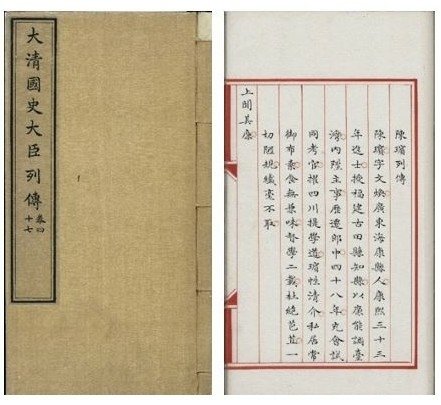 大清國史大臣列傳
卷四
十七
陳璸列傳
陳璸字文煥廣東海康縣人康熙三十三
年進士授福建古田縣知縣以廉能調臺
灣內陞主事歷遷郎中四十八年充會試
同考官擢四川提學道璸性清介私居常
御布素食無兼味督學二載杜絕苞苴一
切陋規纖毫不取
上聞其廉